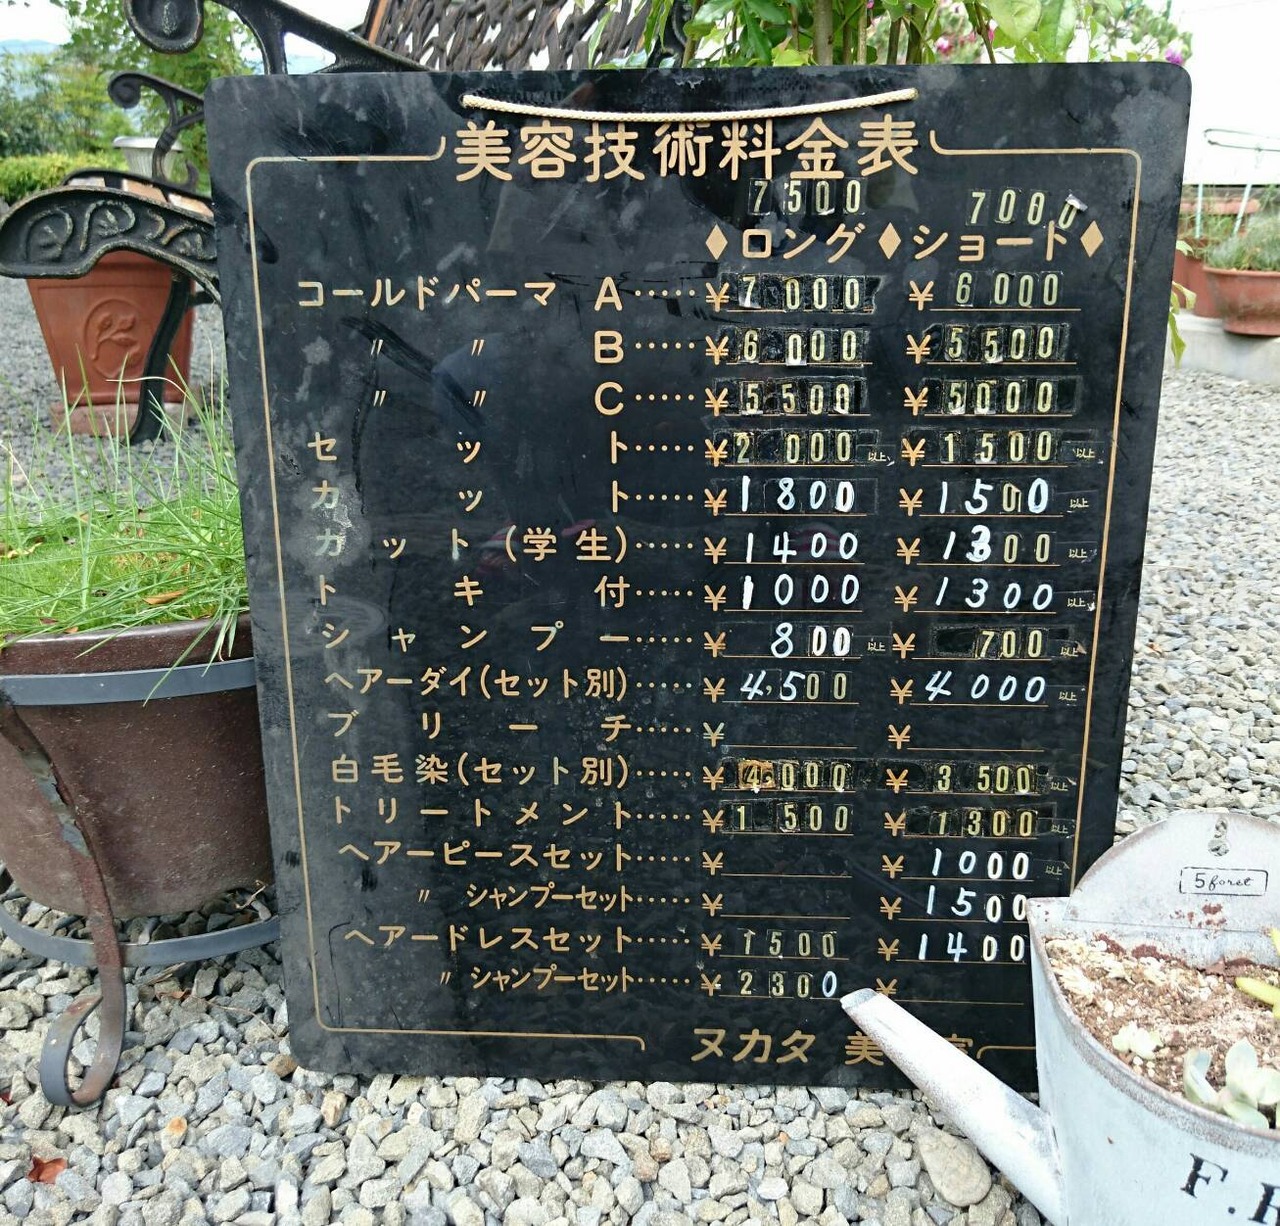 美容技術料金表
7500 7000
◆ロング◆ショート◆
コールドパーマ A……¥7000 ¥6000
〃 〃 B……¥6000 ¥5500
〃 〃 C……¥5500 ¥5000
セット……¥2000以上 ¥1500以上
カット……¥1800 ¥1500以上
カット(学生)……¥1400 ¥1300以上
トキ付……¥1000 ¥1300以上
シャンプー……¥800以上 ¥700以上
ヘアーダイ(セット別)……¥4,500 ¥4000以上
ブリーチ……¥ ¥
白毛染(セット別)……¥4000 ¥3500以上
トリートメント……¥1500 ¥1300以上
ヘアーピースセット……¥ ¥1000以上
〃 シャンプーセット……¥ ¥1500
ヘアードレスセット……¥1500 ¥1400
〃 シャンプーセット……¥2300 ¥
ヌカタ 美 容
5 foret
F.